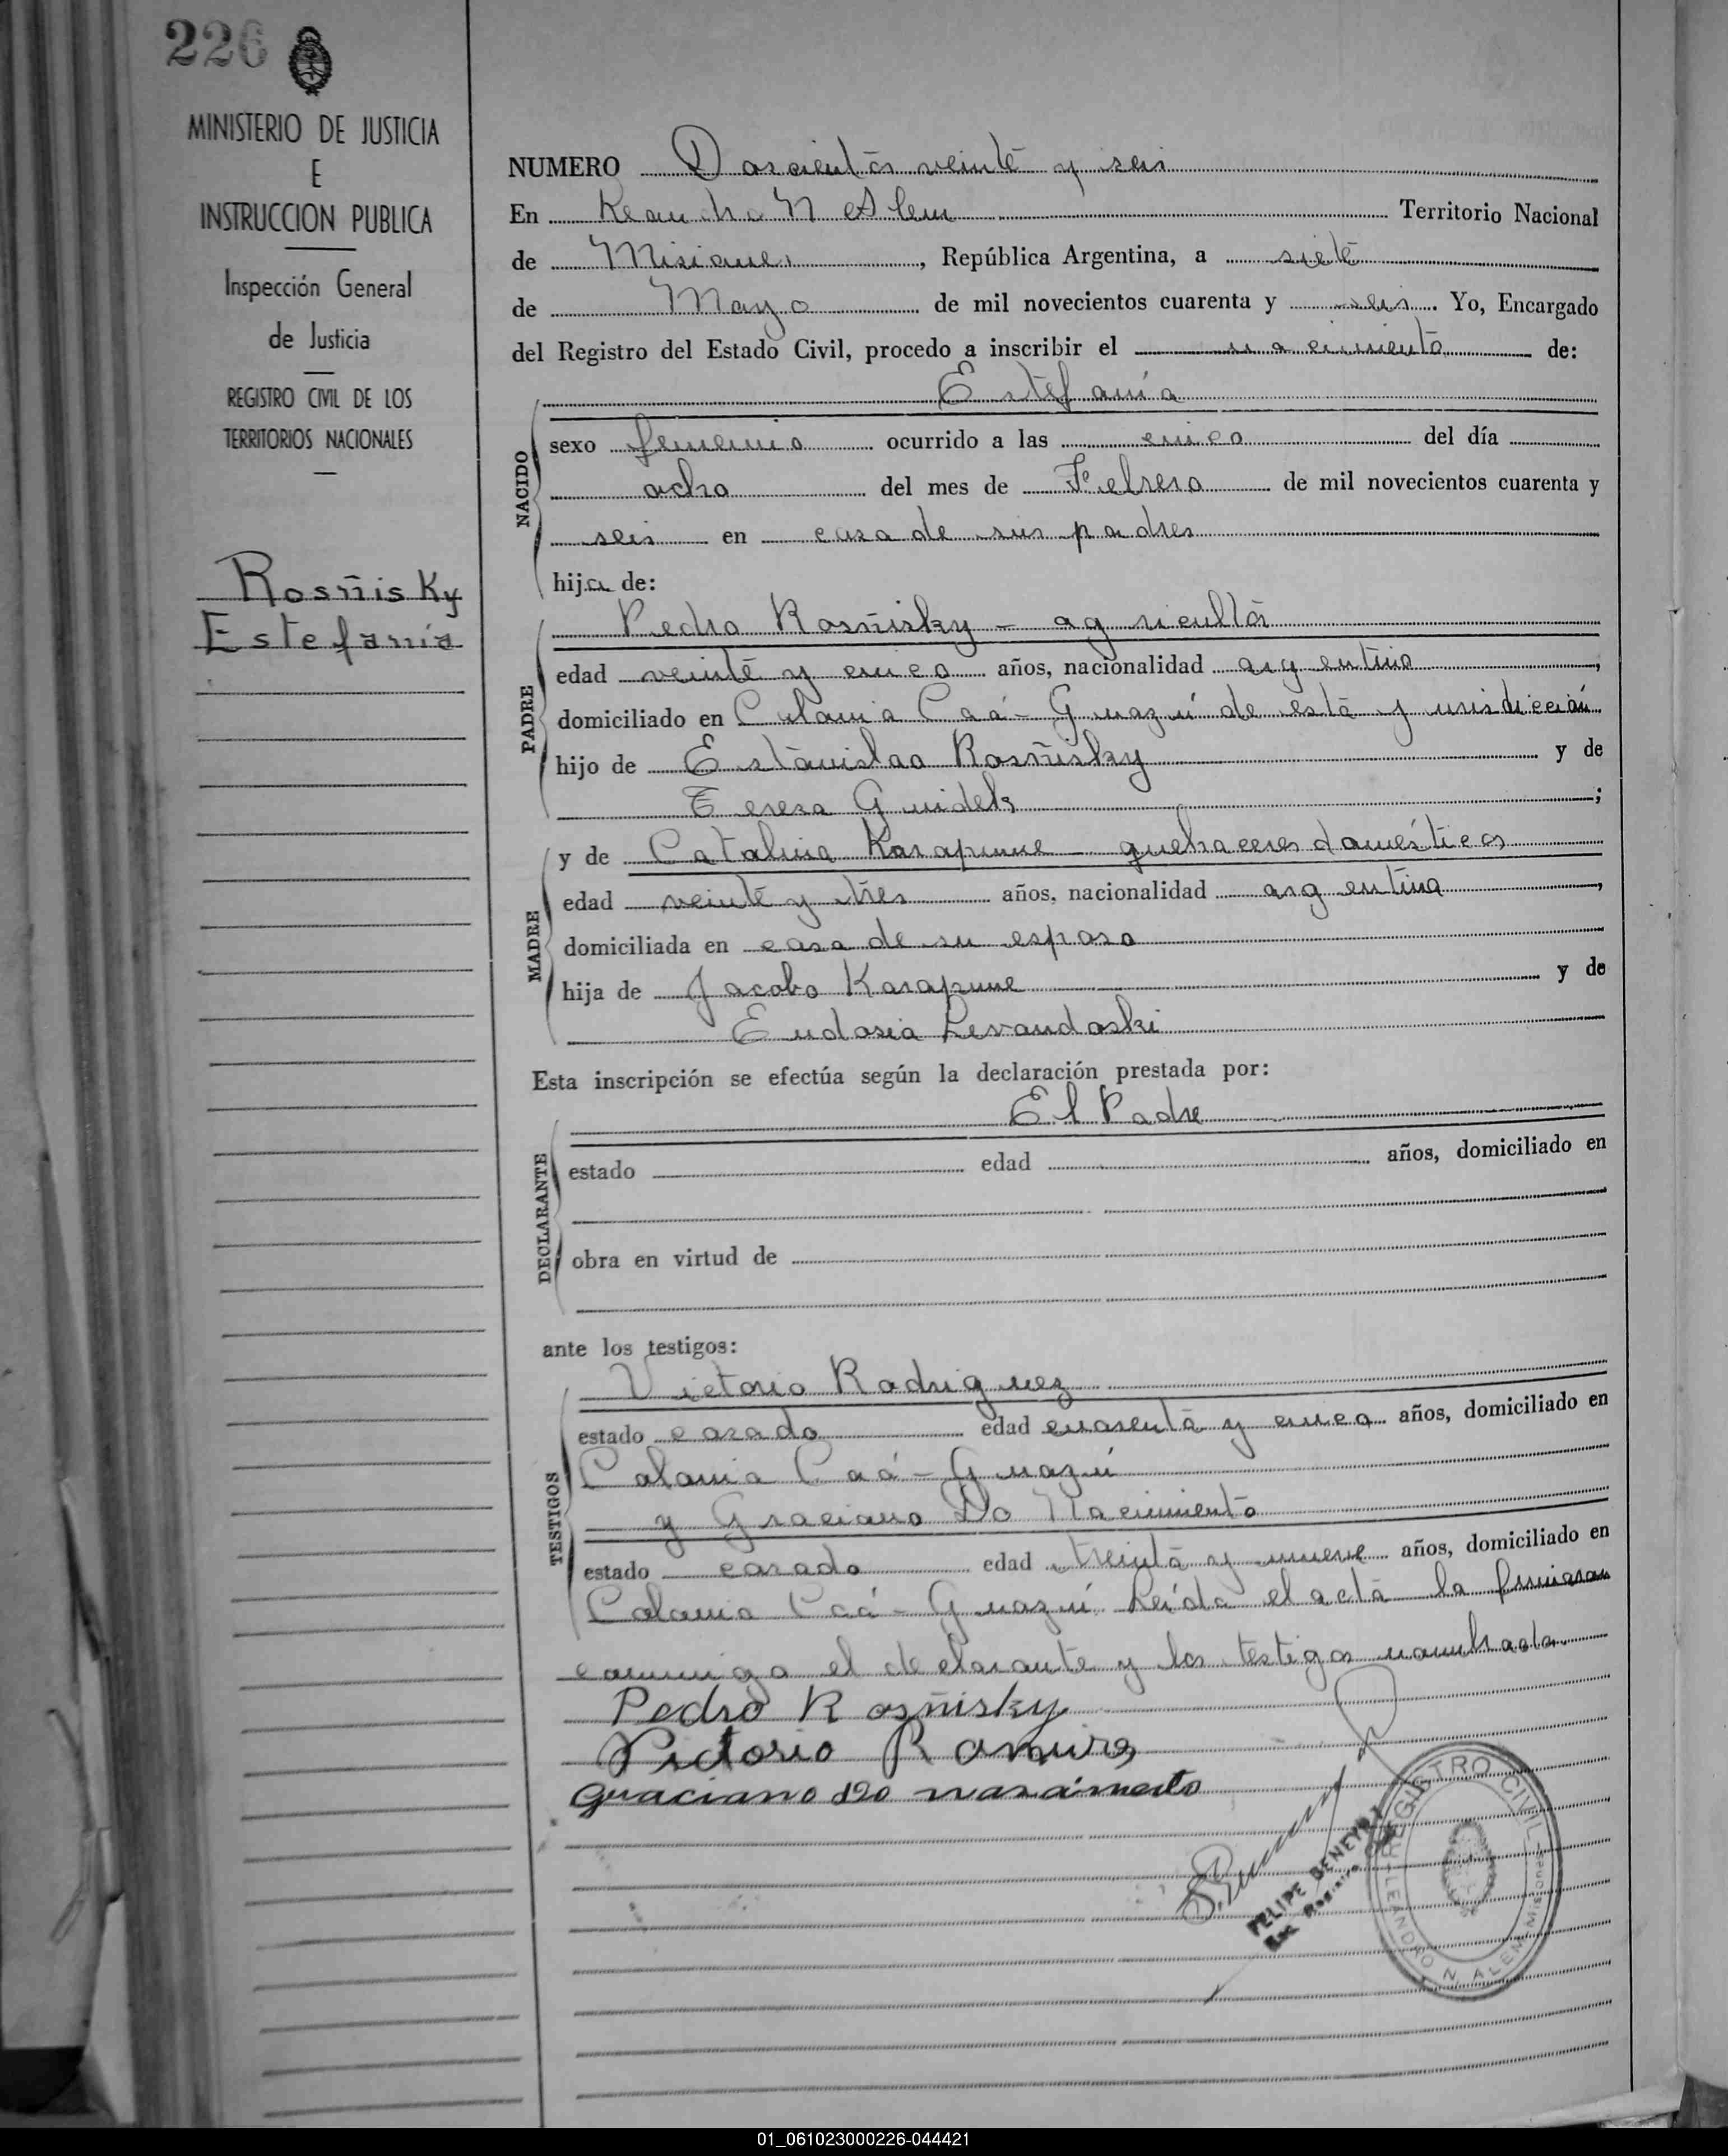 226
MINISTERIO DE JUSTICIA
E
INSTRUCCION PUBLICA
Inspección General
de Justicia
REGISTRO CIVIL DE LOS
TERRITORIOS NACIONALES
Rosñisky
Estefanía
NUMERO Doscientos veinte y seis
En Leandro N Alem Territorio Nacional
de Misiones, República Argentina, a siete
de Mayo de mil novecientos cuarenta y seis. Yo, Encargado
del Registro del Estado Civil, procedo a inscribir el nacimiento de:
Estefanía
NACIDO
sexo femenino ocurrido a las cinco del día
ocho del mes de Febrero de mil novecientos cuarenta y
seis en casa de sus padres
hija de:
PADRE
Pedro Rosñisky - agricultor
edad veinte y cinco años, nacionalidad argentino,
domiciliado en Colonia Caá-Guazú de esta jurisdicción
hijo de Estanislao Rosñisky y de
Teresa ;
MADRE
y de Catalina - quehaceres domésticos
edad veinte y tres años, nacionalidad argentina,
domiciliada en casa de su esposo
hija de Jacobo y de
Eudosia Levandoski
Esta inscripción se efectúa según la declaración prestada por:
El Padre
DECLARANTE
estado edad años, domiciliado en
obra en virtud de
ante los testigos:
TESTIGOS
Victorio Rodriguez
estado casado edad cuarenta y cinco años, domiciliado en
Colonia Caá-Guazú
y Graciano Do Nacimiento
estado casado edad treinta y nueve años, domiciliado en
Colonia Caá-Guazú. Leída el acta la firman
conmigo el declarante y los testigos nombrados
Pedro Rosñisky
Victorio
Graciano do
FELIPE
REGISTRO CIVIL
LEANDRO N. ALEM
01_061023000226-044421